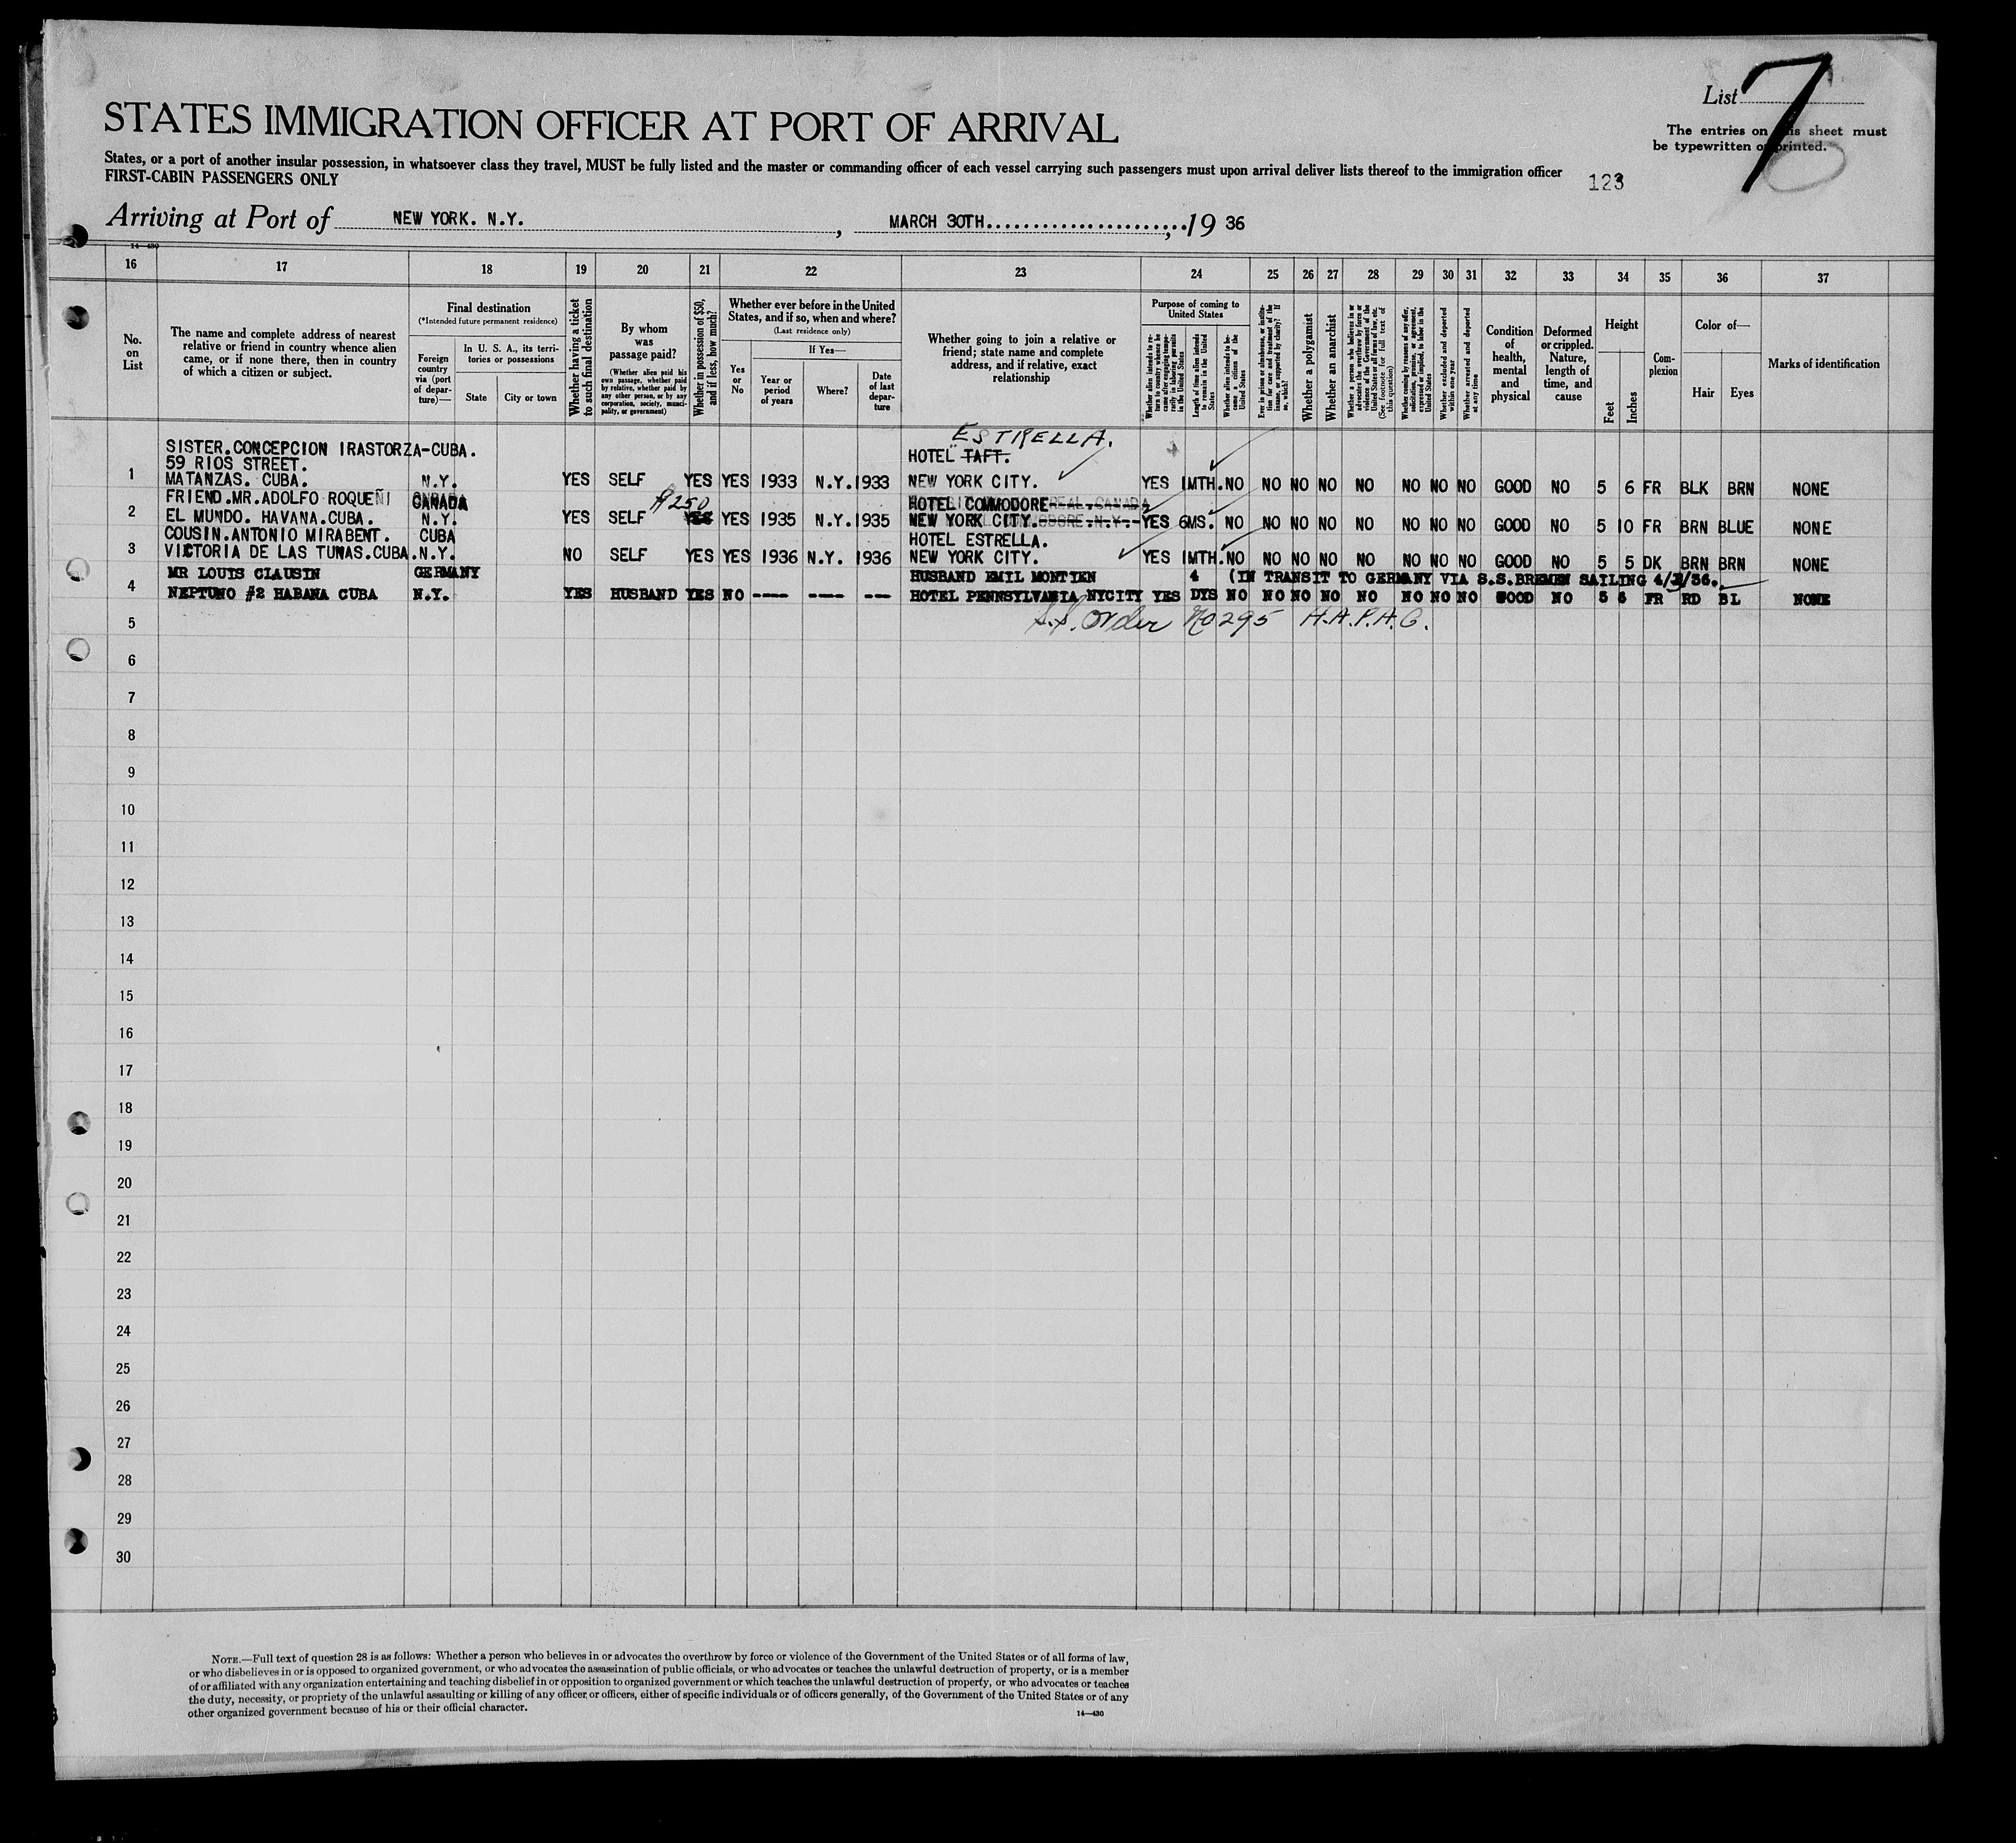 List 7
STATES IMMIGRATION OFFICER AT PORT OF ARRIVAL
The entries on this sheet must
be typewritten or printed.
States, or a port of another insular possession, in whatsoever class they travel, MUST be fully listed and the master or commanding officer of each vessel carrying such passengers must upon arrival deliver lists thereof to the immigration officer
FIRST-CABIN PASSENGERS ONLY
123
Arriving at Port of NEW YORK. N.Y. , MARCH 30TH , 19 36
14—430
16 17 18 19 20 21 22 23 24 25 26 27 28 29 30 31 32 33 34 35 36 37
No. on List
The name and complete address of nearest relative or friend in country whence alien came, or if none there, then in country of which a citizen or subject.
Final destination
(*Intended future permanent residence)
Foreign country via (port of departure)—
In U. S. A., its territories or possessions
State
City or town
Whether having a ticket to such final destination
By whom was passage paid?
(Whether alien paid his own passage, whether paid by relative, whether paid by any other person, or by any corporation, society, municipality, or government)
Whether in possession of $50, and if less, how much?
Whether ever before in the United States, and if so, when and where?
(Last residence only)
Yes or No
If Yes—
Year or period of years
Where?
Date of last departure
Whether going to join a relative or friend; state name and complete address, and if relative, exact relationship
Purpose of coming to United States
Whether alien intends to return to country whence he came after engaging temporarily in laboring pursuits in the United States
Length of time alien intends to remain in the United States
Whether alien intends to become a citizen of the United States
Ever in prison or almshouse, or institution for care and treatment of the insane, or supported by charity? If so, which?
Whether a polygamist
Whether an anarchist
Whether a person who believes in or advocates the overthrow by force or violence of the Government of the United States or all forms of law, etc. (See footnote for full text of this question)
Whether coming by reasons of any offer, solicitation, promise, or agreement, expressed or implied, to labor in the United States
Whether excluded and deported within one year
Whether arrested and deported at any time
Condition of health, mental and physical
Deformed or crippled. Nature, length of time, and cause
Height
Feet
Inches
Complexion
Color of—
Hair
Eyes
Marks of identification
SISTER.CONCEPCION IRASTORZA-CUBA. ESTRELLA.
59 RIOS STREET. HOTEL TAFT.
1 MATANZAS. CUBA. N.Y. YES SELF YES YES 1933 N.Y. 1933 NEW YORK CITY. YES 1MTH. NO NO NO NO NO NO NO NO GOOD NO 5 6 FR BLK BRN NONE
FRIEND.MR.ADOLFO ROQUEÑI CANADA $250 HOTEL COMMODORE
2 EL MUNDO. HAVANA.CUBA. N.Y. YES SELF YES YES 1935 N.Y. 1935 NEW YORK CITY. YES 6MS. NO NO NO NO NO NO NO NO GOOD NO 5 10 FR BRN BLUE NONE
COUSIN.ANTONIO MIRABENT. CUBA HOTEL ESTRELLA.
3 VICTORIA DE LAS TUNAS.CUBA. N.Y. NO SELF YES YES 1936 N.Y. 1936 NEW YORK CITY. YES 1MTH. NO NO NO NO NO NO NO NO GOOD NO 5 5 DK BRN BRN NONE
MR LOUIS CLAUSIN GERMANY HUSBAND EMIL MONTIEN 4 (IN TRANSIT TO GERMANY VIA S.S.BREMEN SAILING 4/3/36.
4 NEPTUNO #2 HABANA CUBA N.Y. YES HUSBAND YES NO ---- ---- --- HOTEL PENNSYLVANIA NYCITY YES DYS NO NO NO NO NO NO NO NO GOOD NO 5 6 FR RD BL NONE
5 S.S. Order No 295 H.A.P.A.G.
6
7
8
9
10
11
12
13
14
15
16
17
18
19
20
21
22
23
24
25
26
27
28
29
30
NOTE.—Full text of question 28 is as follows: Whether a person who believes in or advocates the overthrow by force or violence of the Government of the United States or of all forms of law,
or who disbelieves in or is opposed to organized government, or who advocates the assassination of public officials, or who advocates or teaches the unlawful destruction of property, or is a member
of or affiliated with any organization entertaining and teaching disbelief in or opposition to organized government or which teaches the unlawful destruction of property, or who advocates or teaches
the duty, necessity, or propriety of the unlawful assaulting or killing of any officer or officers, either of specific individuals or of officers generally, of the Government of the United States or of any
other organized government because of his or their official character.
14—430